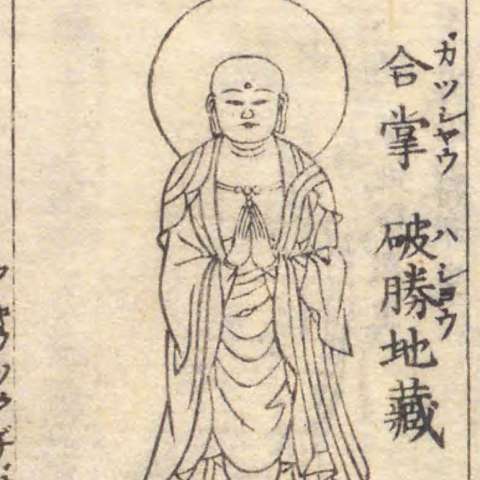 合掌 破勝地藏
ガツシヤウ ハシヨウ